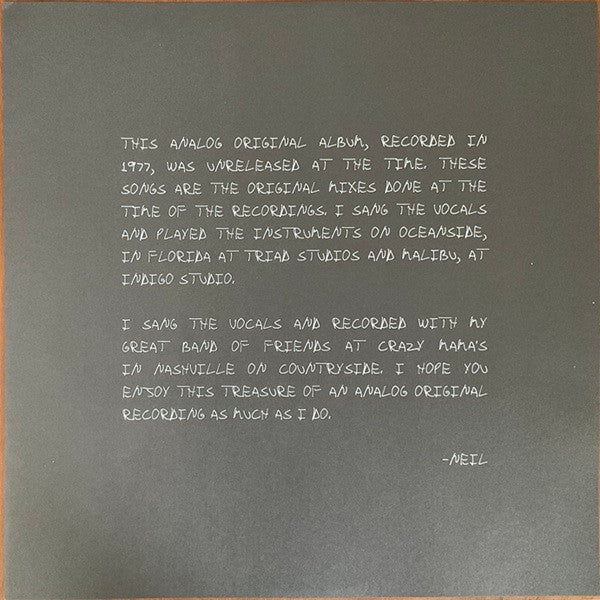 THIS ANALOG ORIGINAL ALBUM, RECORDED IN
1977, WAS UNRELEASED AT THE TIME. THESE
SONGS ARE THE ORIGINAL MIXES DONE AT THE
TIME OF THE RECORDINGS. I SANG THE VOCALS
AND PLAYED THE INSTRUMENTS ON OCEANSIDE,
IN FLORIDA AT TRIAD STUDIOS AND MALIBU, AT
INDIGO STUDIO.
I SANG THE VOCALS AND RECORDED WITH MY
GREAT BAND OF FRIENDS AT CRAZY MAMA'S
IN NASHVILLE ON COUNTRYSIDE. I HOPE YOU
ENJOY THIS TREASURE OF AN ANALOG ORIGINAL
RECORDING AS MUCH AS I DO.
-NEIL